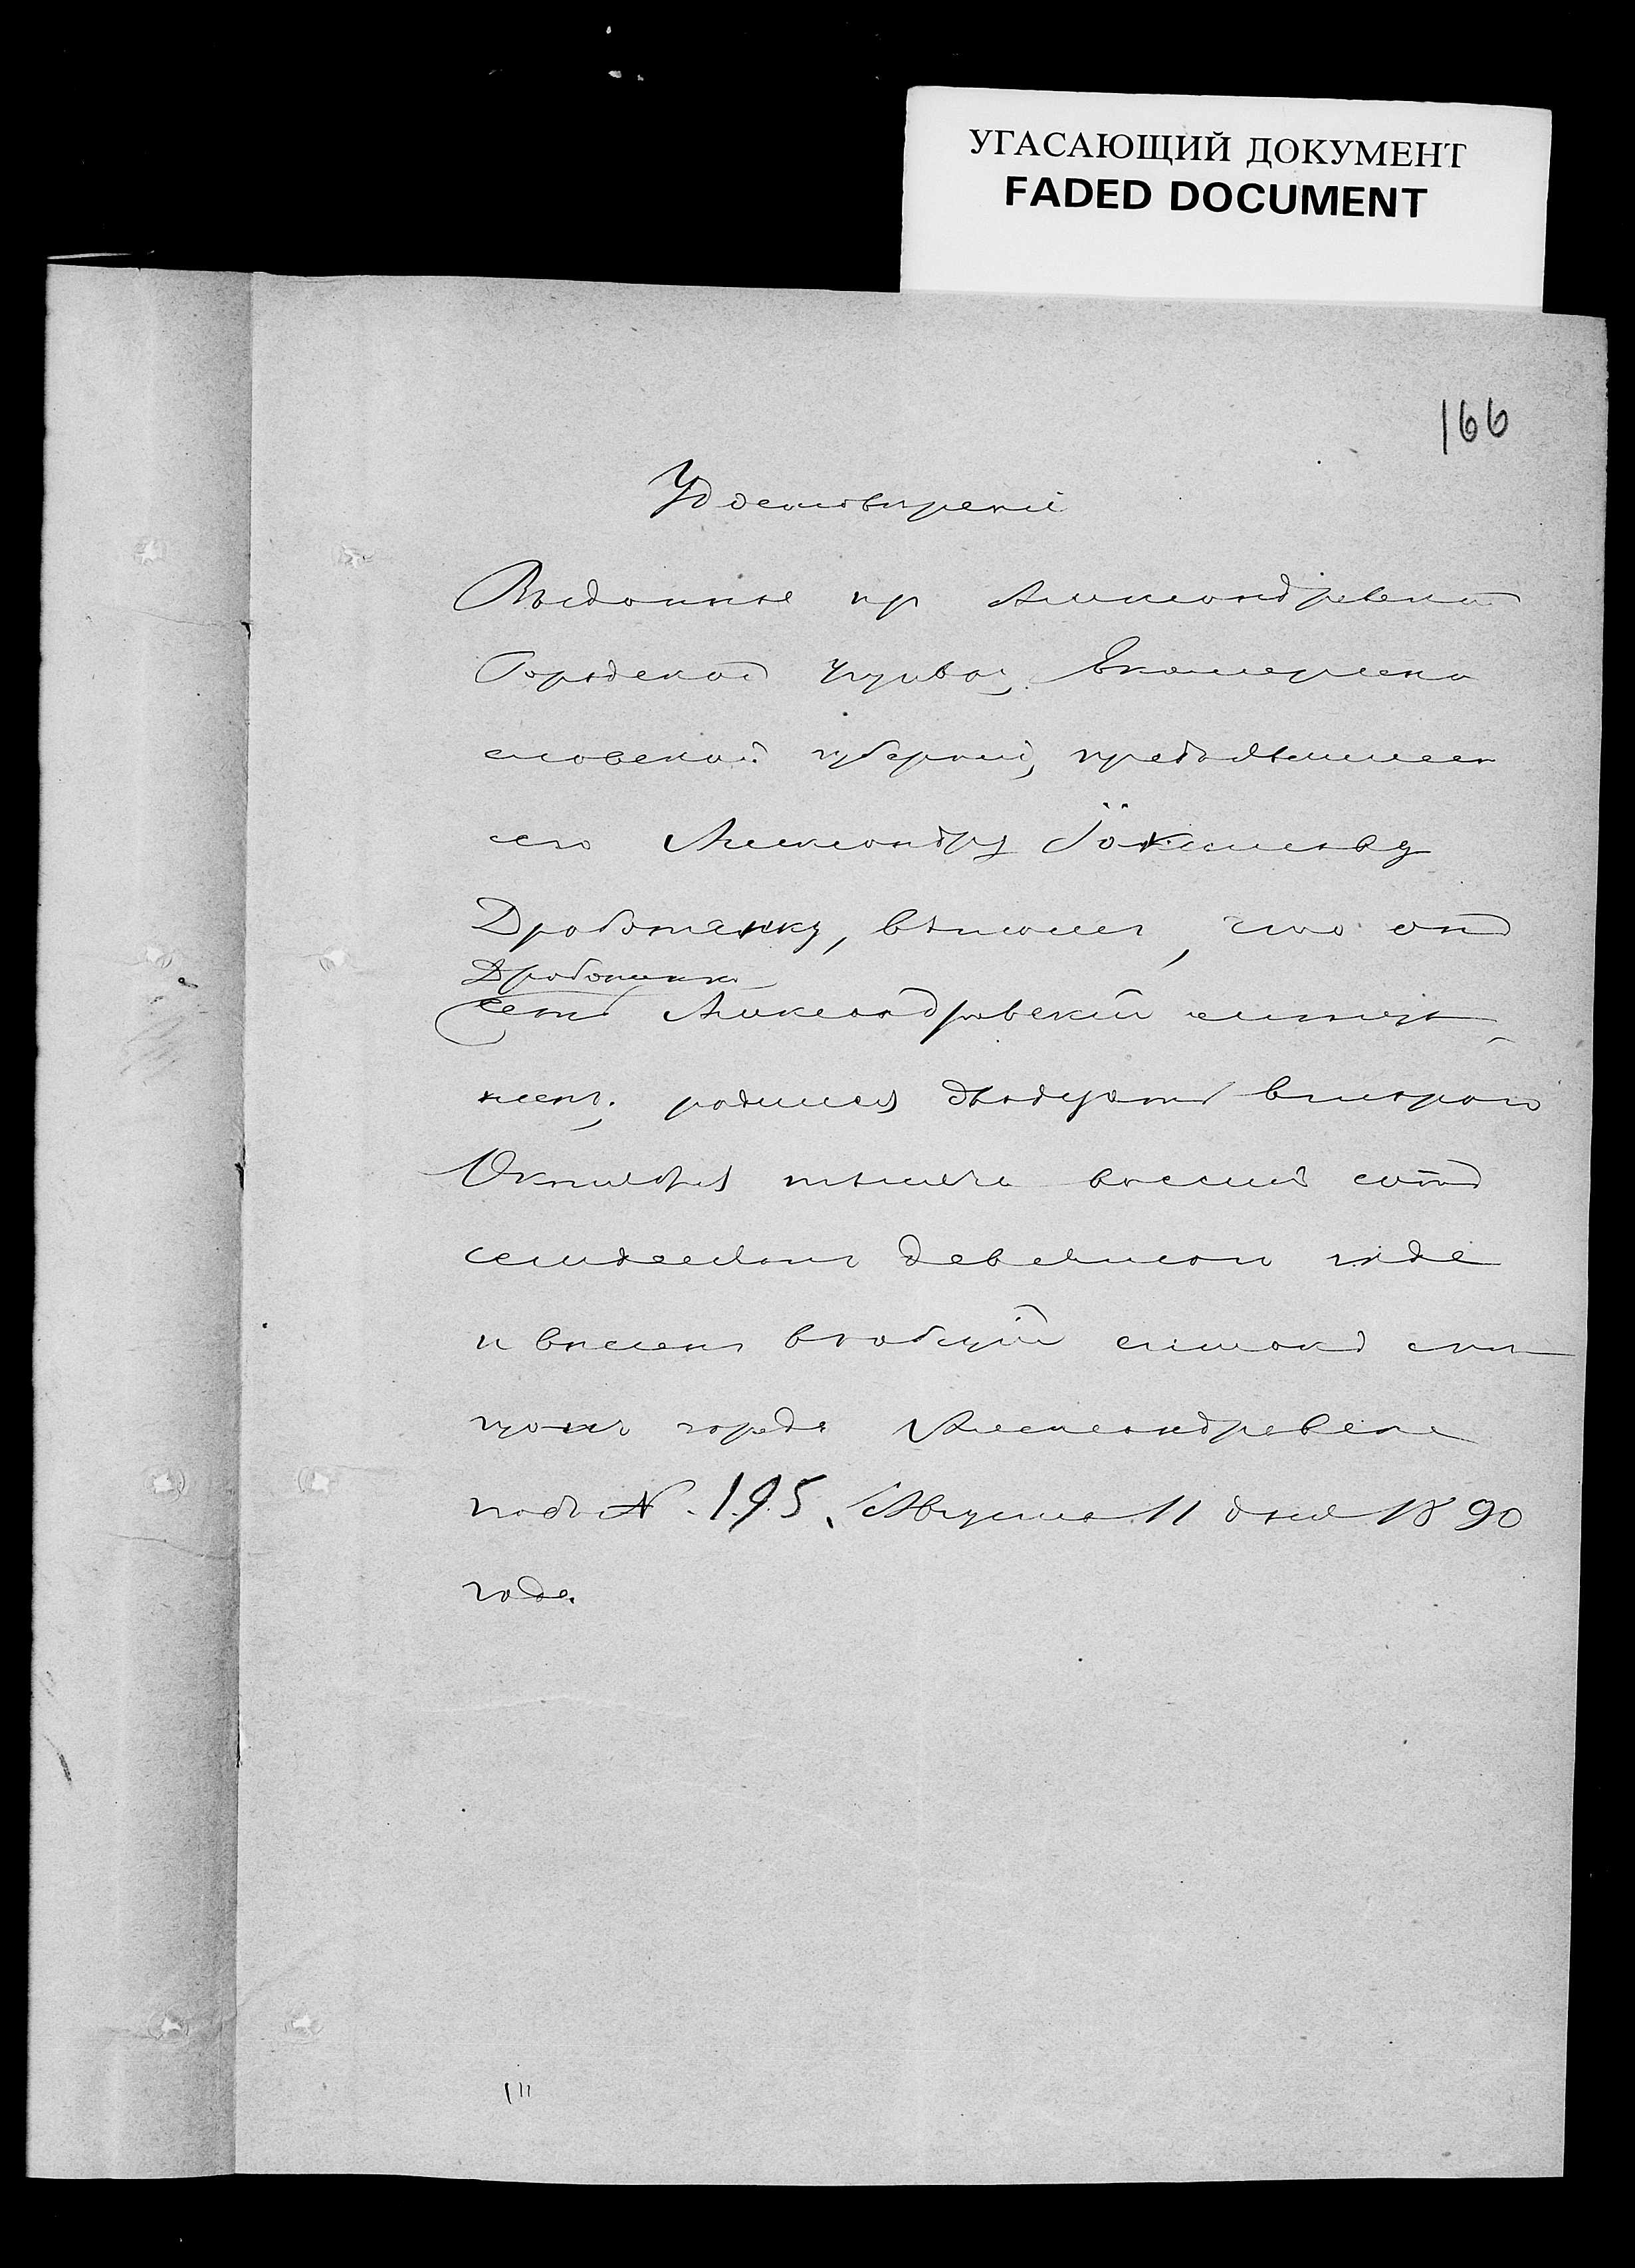 УГАСАЮЩИЙ ДОКУМЕНТ
FADED DOCUMENT
166
Удостоверение
Выданное из Александровской
Городской Управы, Екатерино
славской губернии, предъявителю
сего Александру
Дроботенку, в том, что онъ
Дроботенко
есть Александровский мещан
родился двадцать втораго
Октября тысяча восемь сотъ
семьдесят девятом годе
и внесен в общий списокъ ме
щан города Александровска
подъ № 195. Августа 11 дня 1890
года.